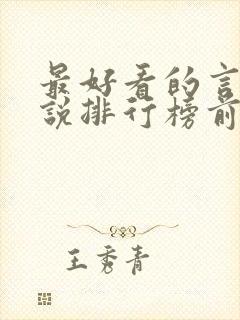 最好看的言
說排行榜前
王秀青